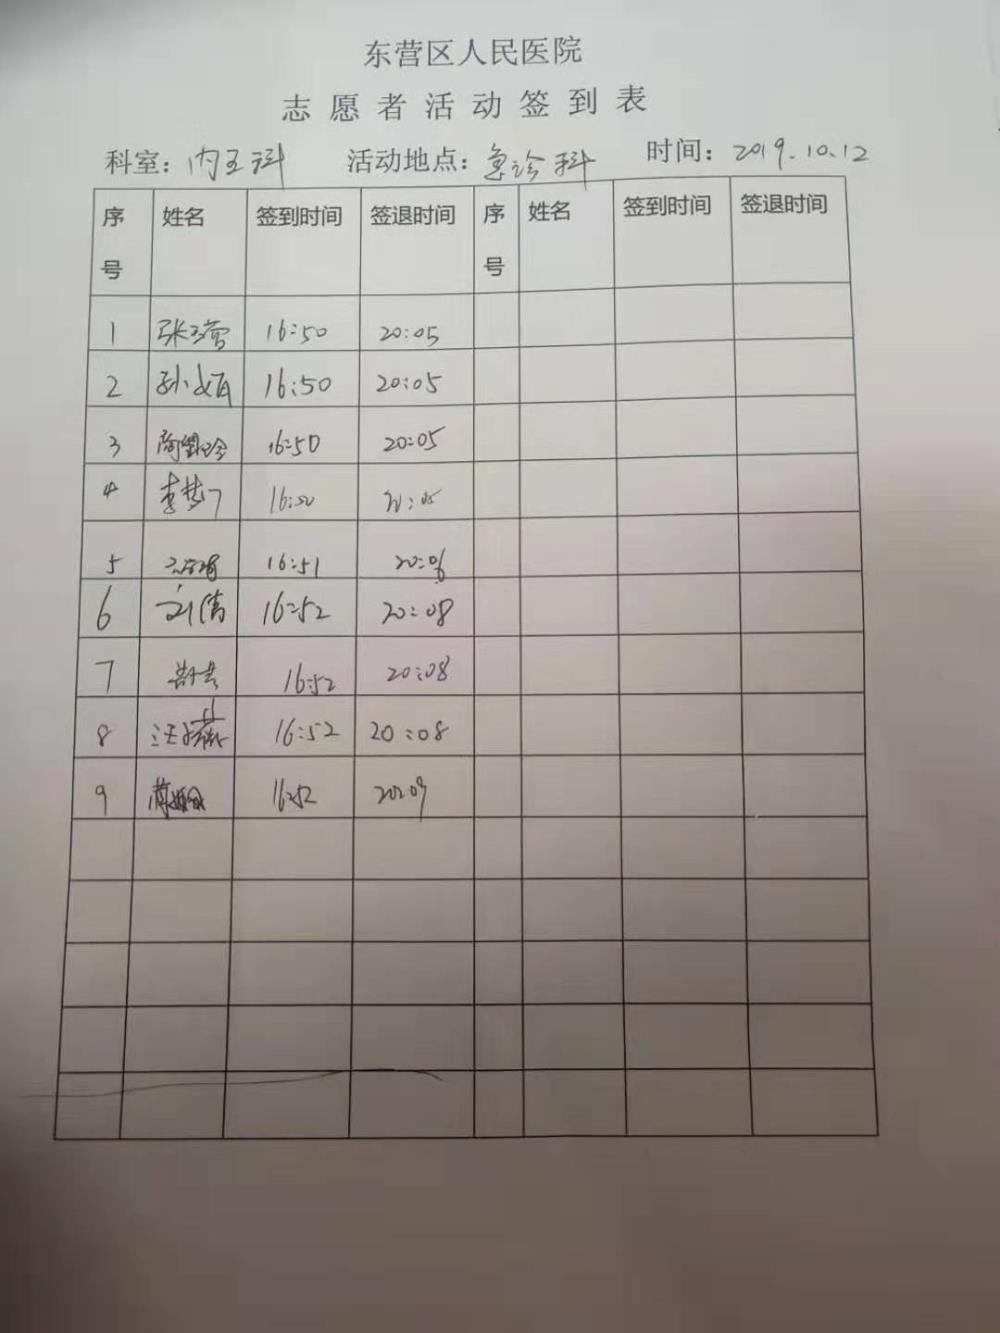 东营区人民医院
志愿者活动签到表
科室：内五科 活动地点：急诊科 时间：2019.10.12
序号 姓名 签到时间 签退时间 序号 姓名 签到时间 签退时间
1 16:50 20:05
2 孙 16:50 20:05
3 16:50 20:05
4 李梦 16:50 20:05
5 16:51 20:06
6 刘倩 16:52 20:08
7 16:52 20:08
8 汪 16:52 20:08
9 16:52 20:09